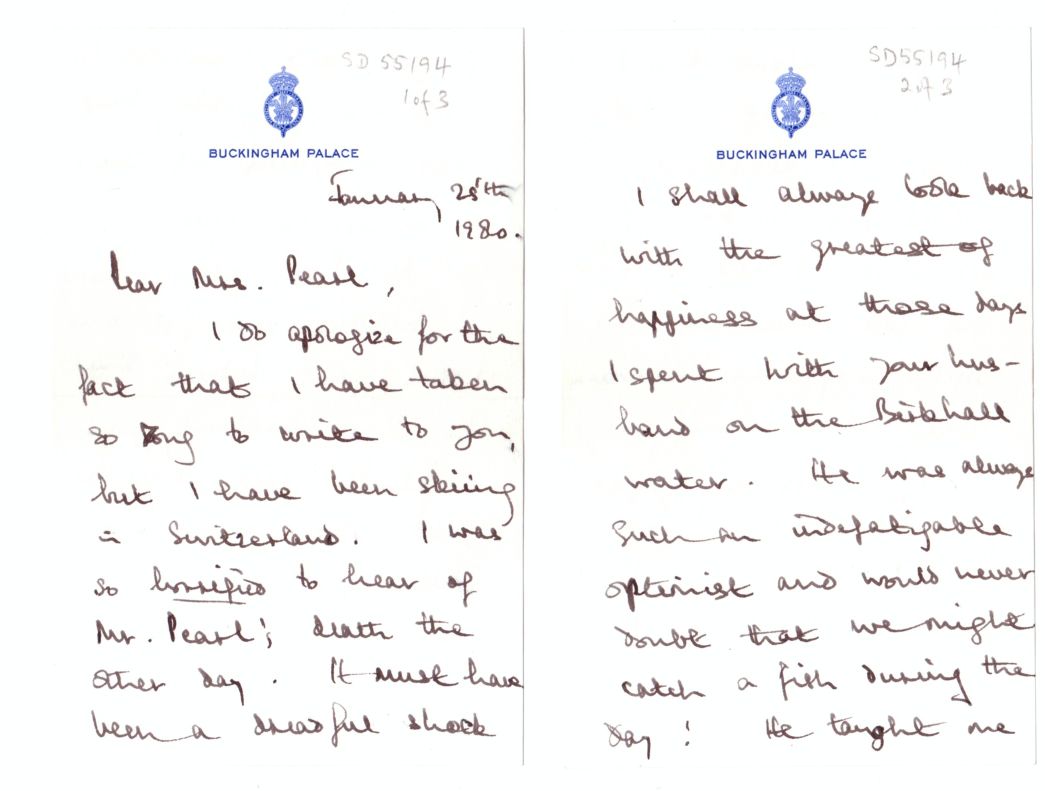 SD 55194
1 of 3
BUCKINGHAM PALACE
January 25th
1980.
Dear Mrs. Pearl,
I do apologize for the
fact that I have taken
so long to write to you,
but I have been skiing
in Switzerland. I was
so horrified to hear of
Mr. Pearl's death the
other day. It must have
been a dreadful shock
SD55194
2 of 3
BUCKINGHAM PALACE
I shall always look back
with the greatest of
happiness at those days
I spent with your hus-
band on the Birkhall
water. He was always
such an indefatigable
optimist and would never
doubt that we might
catch a fish during the
day! He taught me